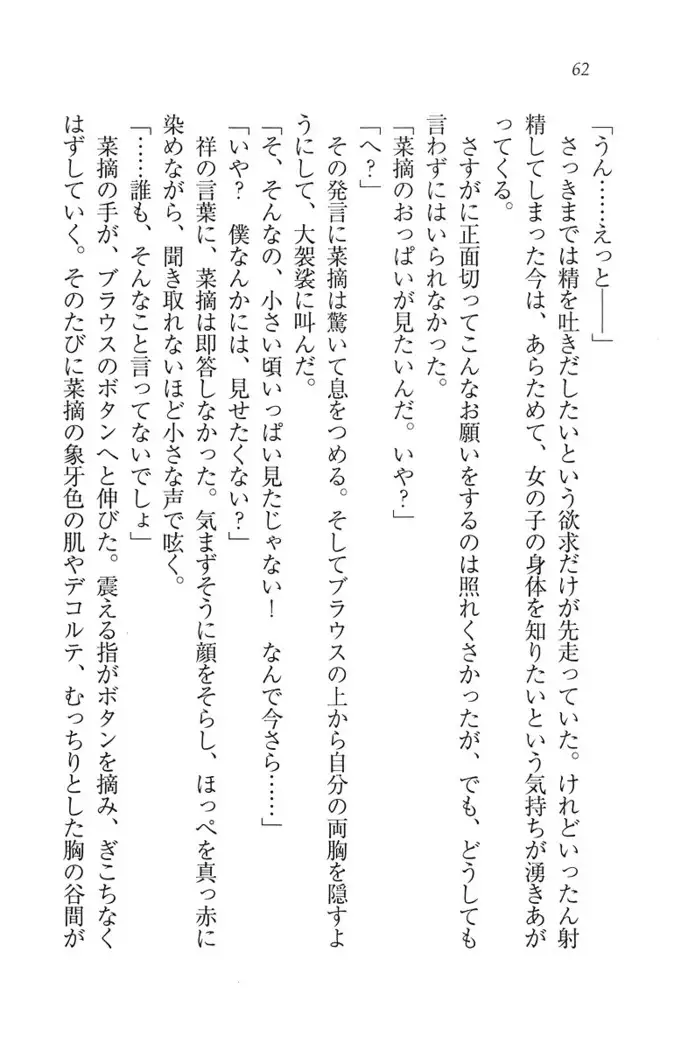 62
「うん……えっと――」
　さっきまでは精を吐きだしたいという欲求だけが先走っていた。けれどいったん射
精してしまった今は、あらためて、女の子の身体を知りたいという気持ちが湧きあが
ってくる。
　さすがに正面切ってこんなお願いをするのは照れくさかったが、でも、どうしても
言わずにはいられなかった。
「菜摘のおっぱいが見たいんだ。いや？」
「へ？」
　その発言に菜摘は驚いて息をつめる。そしてブラウスの上から自分の両胸を隠すよ
うにして、大袈裟に叫んだ。
「そ、そんなの、小さい頃いっぱい見たじゃない！　なんで今さら……」
「いや？　僕なんかには、見せたくない？」
　祥の言葉に、菜摘は即答しなかった。気まずそうに顔をそらし、ほっぺを真っ赤に
染めながら、聞き取れないほど小さな声で呟く。
「……誰も、そんなこと言ってないでしょ」
　菜摘の手が、ブラウスのボタンへと伸びた。震える指がボタンを摘み、ぎこちなく
はずしていく。そのたびに菜摘の象牙色の肌やデコルテ、むっちりとした胸の谷間が